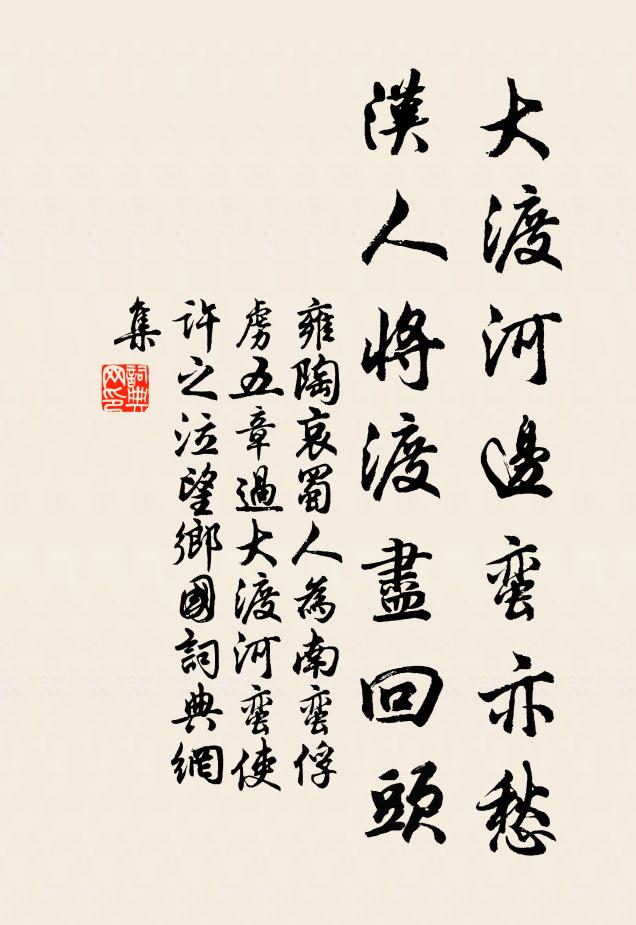 大渡河邊蛮亦愁
漢人將渡盡回頭
雍陶哀蜀人為南蛮俘
虜五章過大渡河蛮使
許之泣望鄉國詞典網
集
詞典
网印